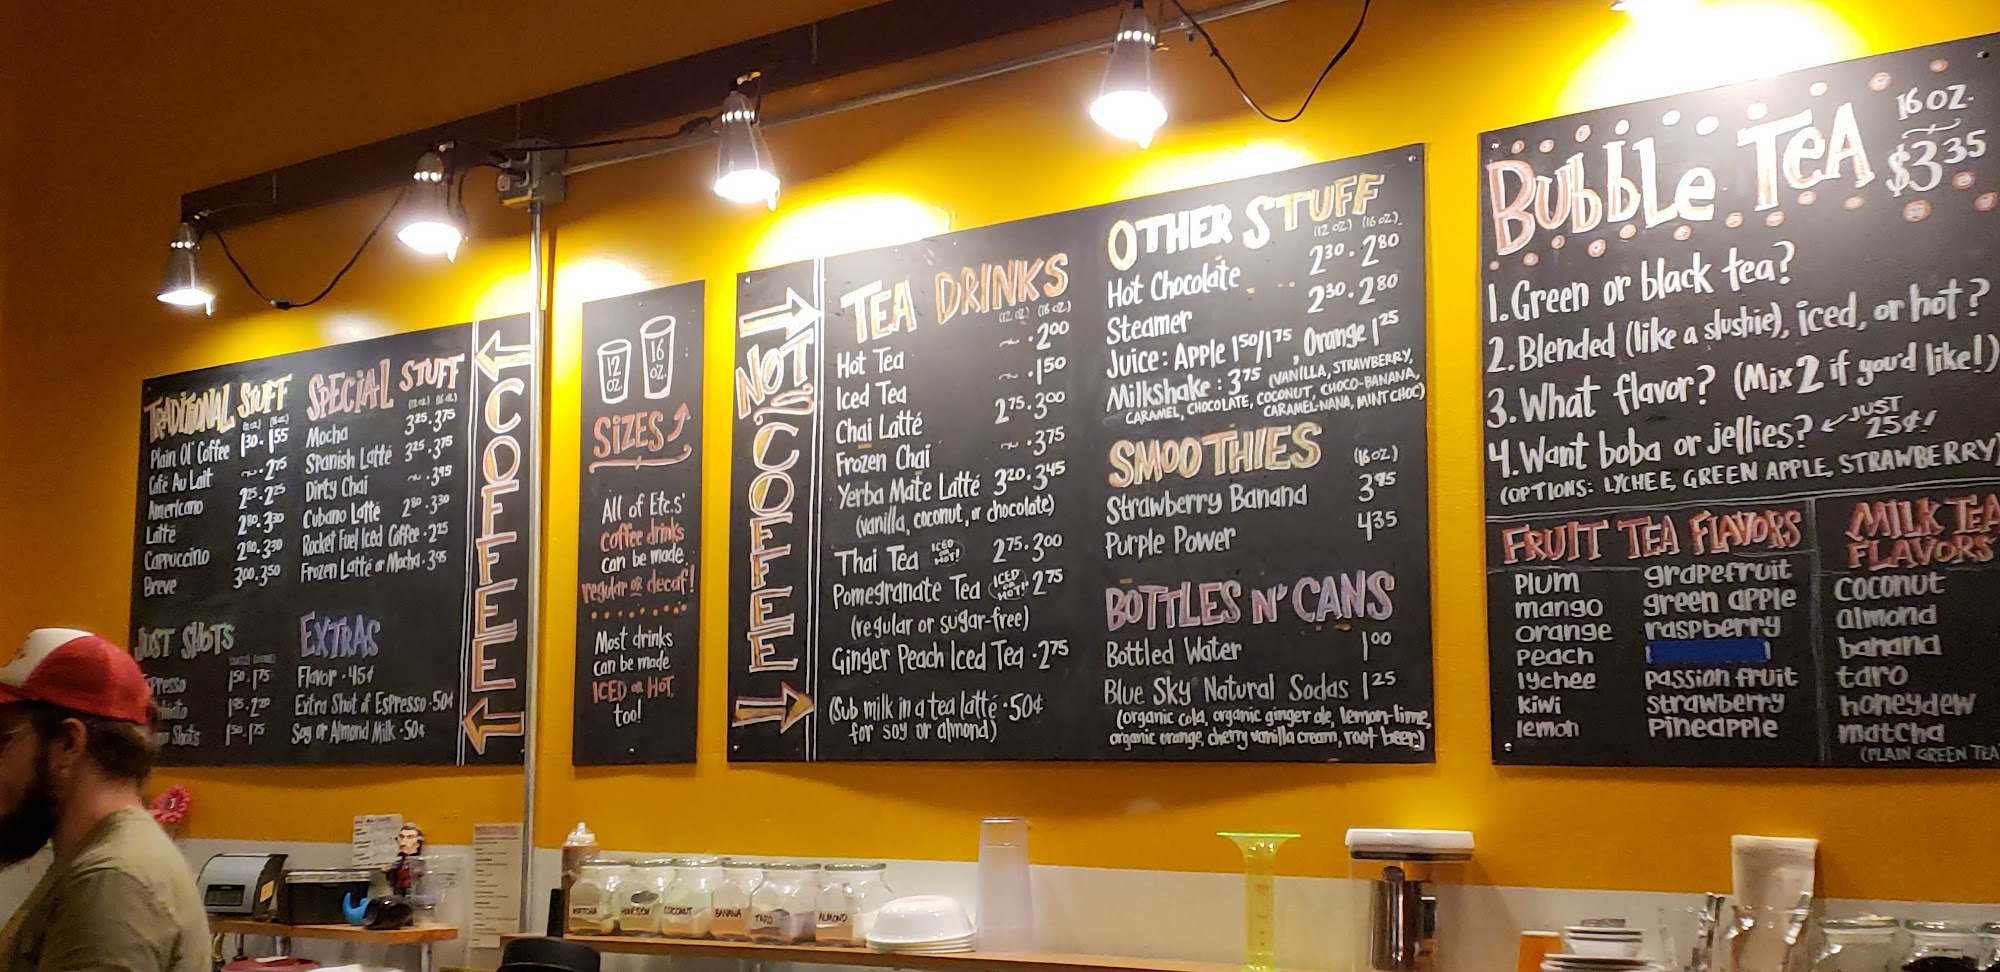 TRADITIONAL STUFF
(12 oz.) (16 oz.)
Plain Ol' Coffee 1.30 · 1.55
Café Au Lait ~ · 2.75
Americano 2.25 · 2.25
Latté 2.80 · 3.30
Cappuccino 2.80 · 3.30
Breve 3.00 · 3.50
JUST SHOTS
1.50 · 1.75
1.50 · 1.75
SPECIAL STUFF
(12 oz.) (16 oz.)
Mocha 3.25 · 3.75
Spanish Latté 3.25 · 3.75
Dirty Chai ~ · 3.95
Cubano Latté 2.80 · 3.30
Rocket Fuel Iced Coffee · 2.25
Frozen Latté or Mocha · 3.95
EXTRAS
Flavor · 45¢
Extra Shot of Espresso · 50¢
Soy or Almond Milk · 50¢
COFFEE
12 oz.
16 oz.
SIZES
All of Etc.s'
coffee drinks
can be made
regular or decaf!
Most drinks
can be made
ICED or HOT,
too!
NOT COFFEE
TEA DRINKS
(12 oz.) (16 oz.)
Hot Tea ~ · 2.00
Iced Tea ~ · 1.50
Chai Latté 2.75 · 3.00
Frozen Chai ~ · 3.75
Yerba Mate Latté 3.20 · 3.45
(vanilla, coconut, or chocolate)
Thai Tea ICED or HOT! 2.75 · 3.00
Pomegranate Tea ICED or HOT! 2.75
(regular or sugar-free)
Ginger Peach Iced Tea · 2.75
(Sub milk in a tea latté · 50¢
for soy or almond)
OTHER STUFF
(12 oz.) (16 oz.)
Hot Chocolate 2.30 · 2.80
Steamer 2.30 · 2.80
Juice: Apple 1.50/1.75, Orange 1.25
Milkshake: 3.75 (VANILLA, STRAWBERRY,
CARAMEL, CHOCOLATE, COCONUT, CHOCO-BANANA,
CARAMEL-NANA, MINT CHOC)
SMOOTHIES
(16 oz.)
Strawberry Banana 3.95
Purple Power 4.35
BOTTLES N' CANS
Bottled Water 1.00
Blue Sky Natural Sodas 1.25
(organic cola, organic ginger ale, lemon-lime,
organic orange, cherry vanilla cream, root beer)
BUBBLE TEA 16 oz. $3.35
1. Green or black tea?
2. Blended (like a slushie), iced, or hot?
3. What flavor? (Mix 2 if you'd like!)
4. Want boba or jellies? JUST 25¢!
(OPTIONS: LYCHEE, GREEN APPLE, STRAWBERRY)
FRUIT TEA FLAVORS
Plum
mango
orange
Peach
lychee
kiwi
lemon
grapefruit
green apple
raspberry
passion fruit
strawberry
Pineapple
MILK TEA
FLAVORS
coconut
almond
banana
taro
honeydew
matcha
(PLAIN GREEN TEA
MATCHA
HONEYDEW
COCONUT
BANANA
TARO
ALMOND